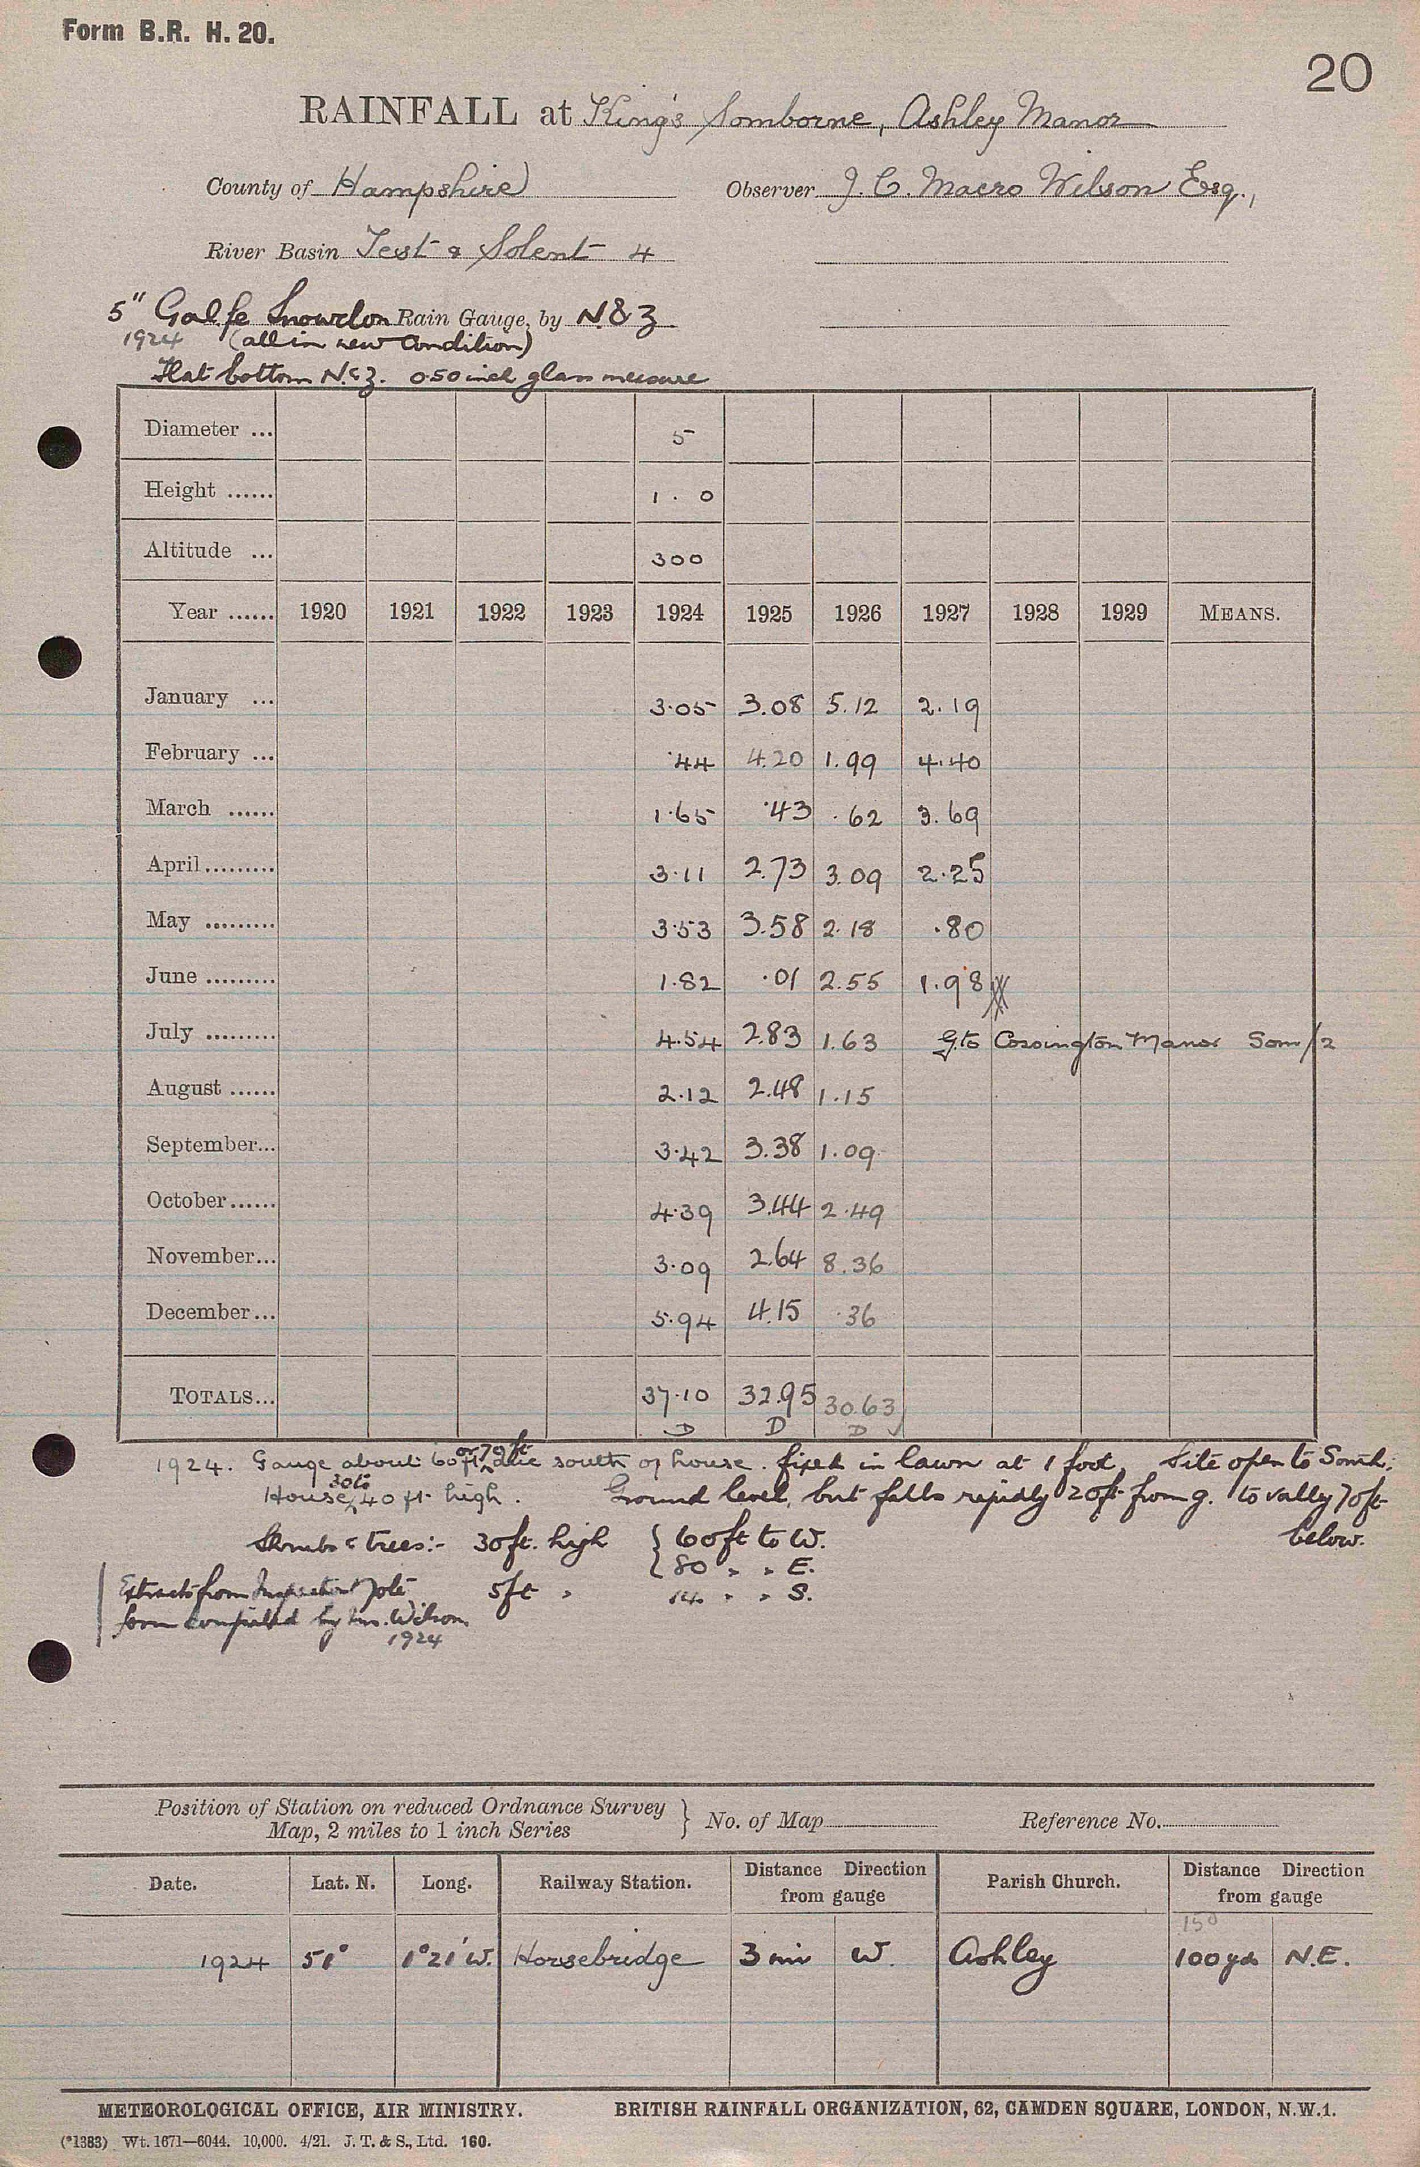 Form B.R. H. 20.
20
RAINFALL at King's Somborne, Ashley Manor
County of Hampshire Observer J. C. Macro Wilson Esq.,
River Basin Test & Solent 4
5" Gal fe Snowdon Rain Gauge, by N & Z
1924 (all in new condition)
Flat bottom N. & Z. 0.50 inch glass measure
Diameter ... 5
Height ...... 1 . 0
Altitude ... 300
Year ...... 1920 1921 1922 1923 1924 1925 1926 1927 1928 1929 MEANS.
January ... 3.05 3.08 5.12 2.19
February ... .44 4.20 1.99 4.40
March ...... 1.65 .43 .62 3.69
April ......... 3.11 2.73 3.09 2.25
May ......... 3.53 3.58 2.18 .80
June ......... 1.82 .01 2.55 1.98
July ......... 4.54 2.83 1.63 G to Cossington Manor Som/2
August ...... 2.12 2.48 1.15
September... 3.42 3.38 1.09
October ...... 4.39 3.44 2.49
November... 3.09 2.64 8.36
December... 5.94 4.15 .36
TOTALS... 37.10 32.95 30.63
D D D ✓
1924. Gauge about 60 ft or 70 ft due south of house. fixed in lawn at 1 foot. Site open to South;
House 30 to 40 ft. high. Ground level, but falls rapidly 20ft from g. to vally 70ft
below.
Shrubs & trees:- 30ft. high { 60ft to W.
{ 80 " " E.
5ft " 14 " " S.
Extracts from Inspection
form compiled by Mr. Wilson
1924
Position of Station on reduced Ordnance Survey
Map, 2 miles to 1 inch Series } No. of Map Reference No.
Date. Lat. N. Long. Railway Station. Distance Direction from gauge Parish Church. Distance Direction from gauge
150
1924 51° 1°21' W. Horsebridge 3 mi W. Ashley 100 yds N.E.
METEOROLOGICAL OFFICE, AIR MINISTRY. BRITISH RAINFALL ORGANIZATION, 62, CAMDEN SQUARE, LONDON, N.W.1.
(*1383) Wt. 1671—6044. 10,000. 4/21. J. T. & S., Ltd. 160.